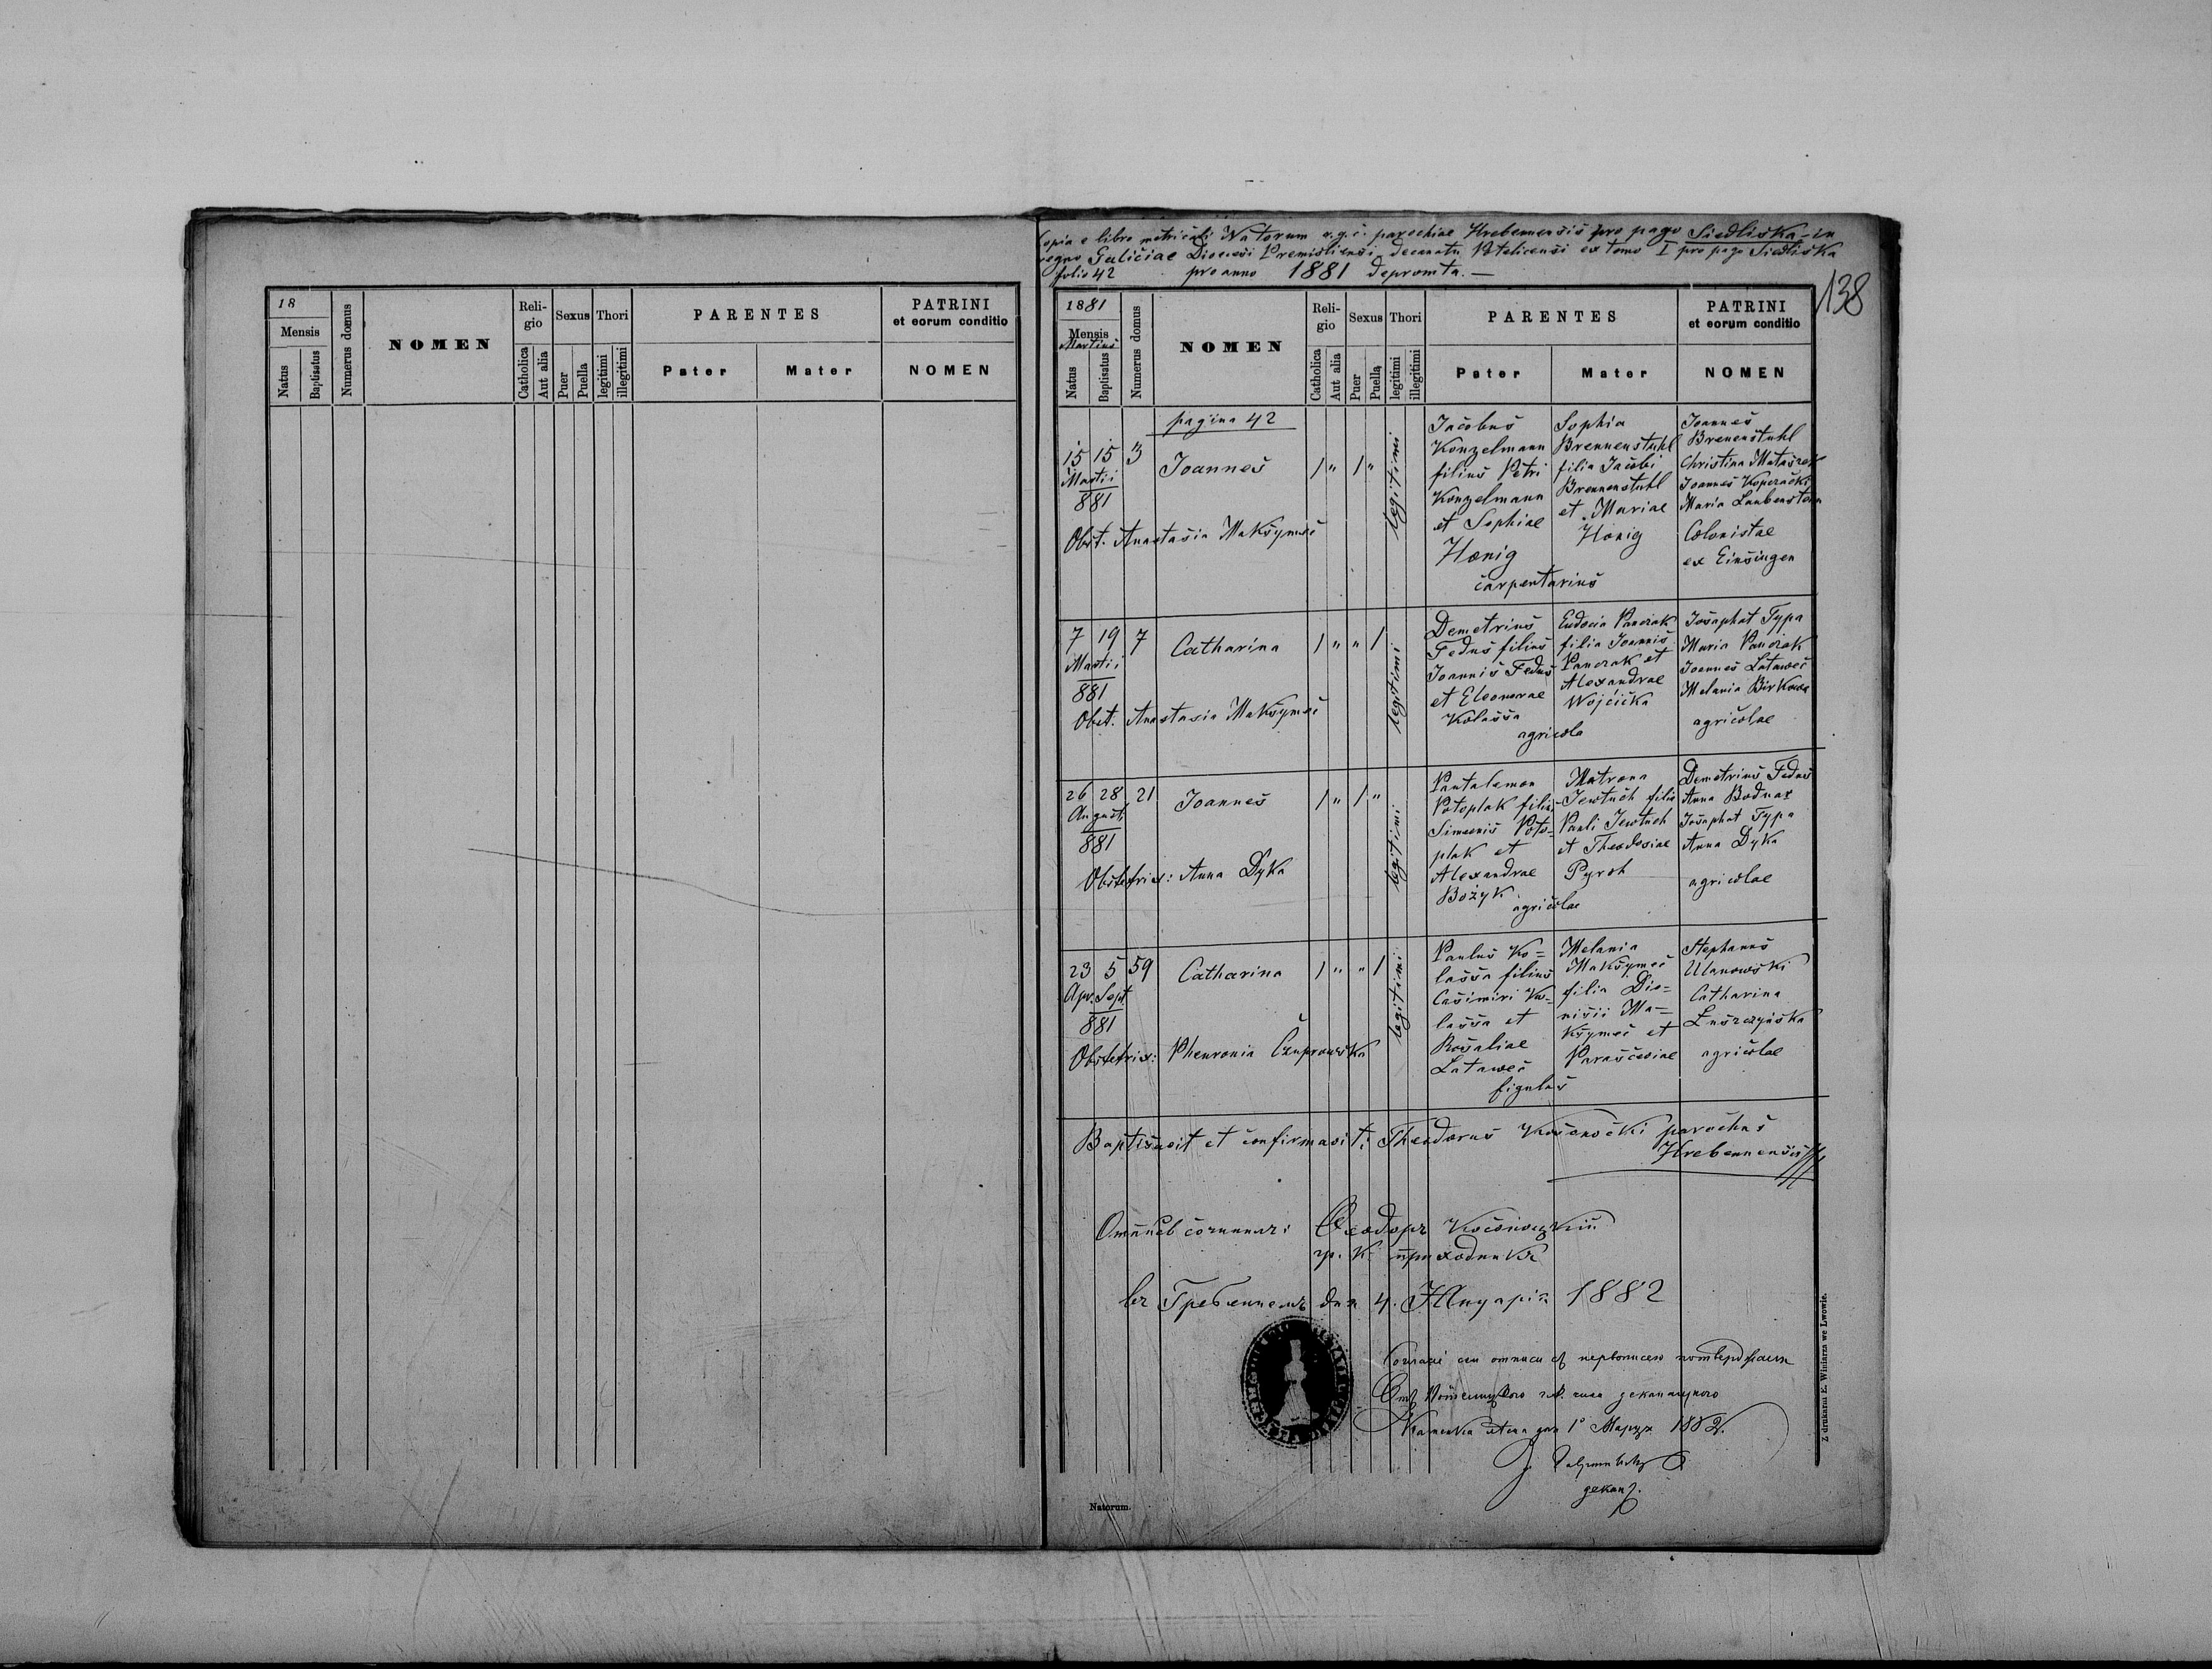 Copia e libro metricali Natorum r.g.c. parochiae Hrebennensis pro pago Siedliska in
regno Galiciae Diocesi Premisliensi decanatu Potelicensi ex tomo I pro pago Siedliska
folio 42 pro anno 1881 depromta. —
138
18
Mensis
Natus
Baptisatus
Numerus domus
NOMEN
Religio
Catholica
Aut alia
Sexus
Puer
Puella
Thori
legitimi
illegitimi
PARENTES
Pater
Mater
PATRINI
et eorum conditio
NOMEN
1881
Mensis
Martius
Natus
Baptisatus
Numerus domus
NOMEN
Religio
Catholica
Aut alia
Sexus
Puer
Puella
Thori
legitimi
illegitimi
PARENTES
Pater
Mater
PATRINI
et eorum conditio
NOMEN
pagina 42
15 15 3
Martii
881
Joannes
1 " 1 "
legitimi
Jacobus
Konzelmann
filius Petri
Konzelmann
et Sophiae
Hœnig
carpentarius
Sophia
Brennenstuhl
filia Jacobi
Brennenstuhl
et Mariae
Hönig
Joannes
Brenenstuhl
Christina Mataszek
Joannes Koperacki
Maria Laubenstein
Colonistae
ex Einsingen
Obst. Anastasia Maksymeć
7 19 7
Martii
881
Catharina
1 " " 1
legitimi
Demetrius
Fedus filius
Joannis Fedus
et Eleonorae
Kolassa
agricola
Eudocia Panczak
filia Joannis
Panczak et
Alexandrae
Wojcicka
Josaphat Typa
Maria Panczak
Joannes Lataweć
Melania Birkowa
agricolae
Obst. Anastasia Maksymeć
26 28 21
August
881
Joannes
1 " 1 "
legitimi
Pantalemon
Potoplak filius
Simeonis Poto-
plak et
Alexandrae
Bożyk
agricolae
Matrona
Jewtuch filia
Pauli Jewtuch
et Theodosiae
Pyroh
Demetrius Fedus
Anna Bodnar
Josaphat Typa
Anna Dyka
agricolae
Obstetrix: Anna Dyka
23 5 59
Apr. Sept
881
Catharina
1 " " 1
legitimi
Paulus Ko=
lassa filius
Casimiri Ko=
lassa et
Rosaliae
Lataweć
figulus
Melania
Maksymeć
filia Dio=
nisii Ma=
ksymeć et
Parasceviae
Stephanus
Ulanowski
Catharina
Luszczyńska
agricolae
Obstetrix: Phewronia Czuprowska
Baptisavit et confirmavit: Theodorus Kosonocki parochus
Hrebennensis
Отписъ сочинилъ: Ѳеодоръ Косоноцкій
гр. к. приходникъ
въ Гребенномъ дня 4. Януарія 1882
декан
Natorum.
Z drukarni E. Winiarza we Lwowie.